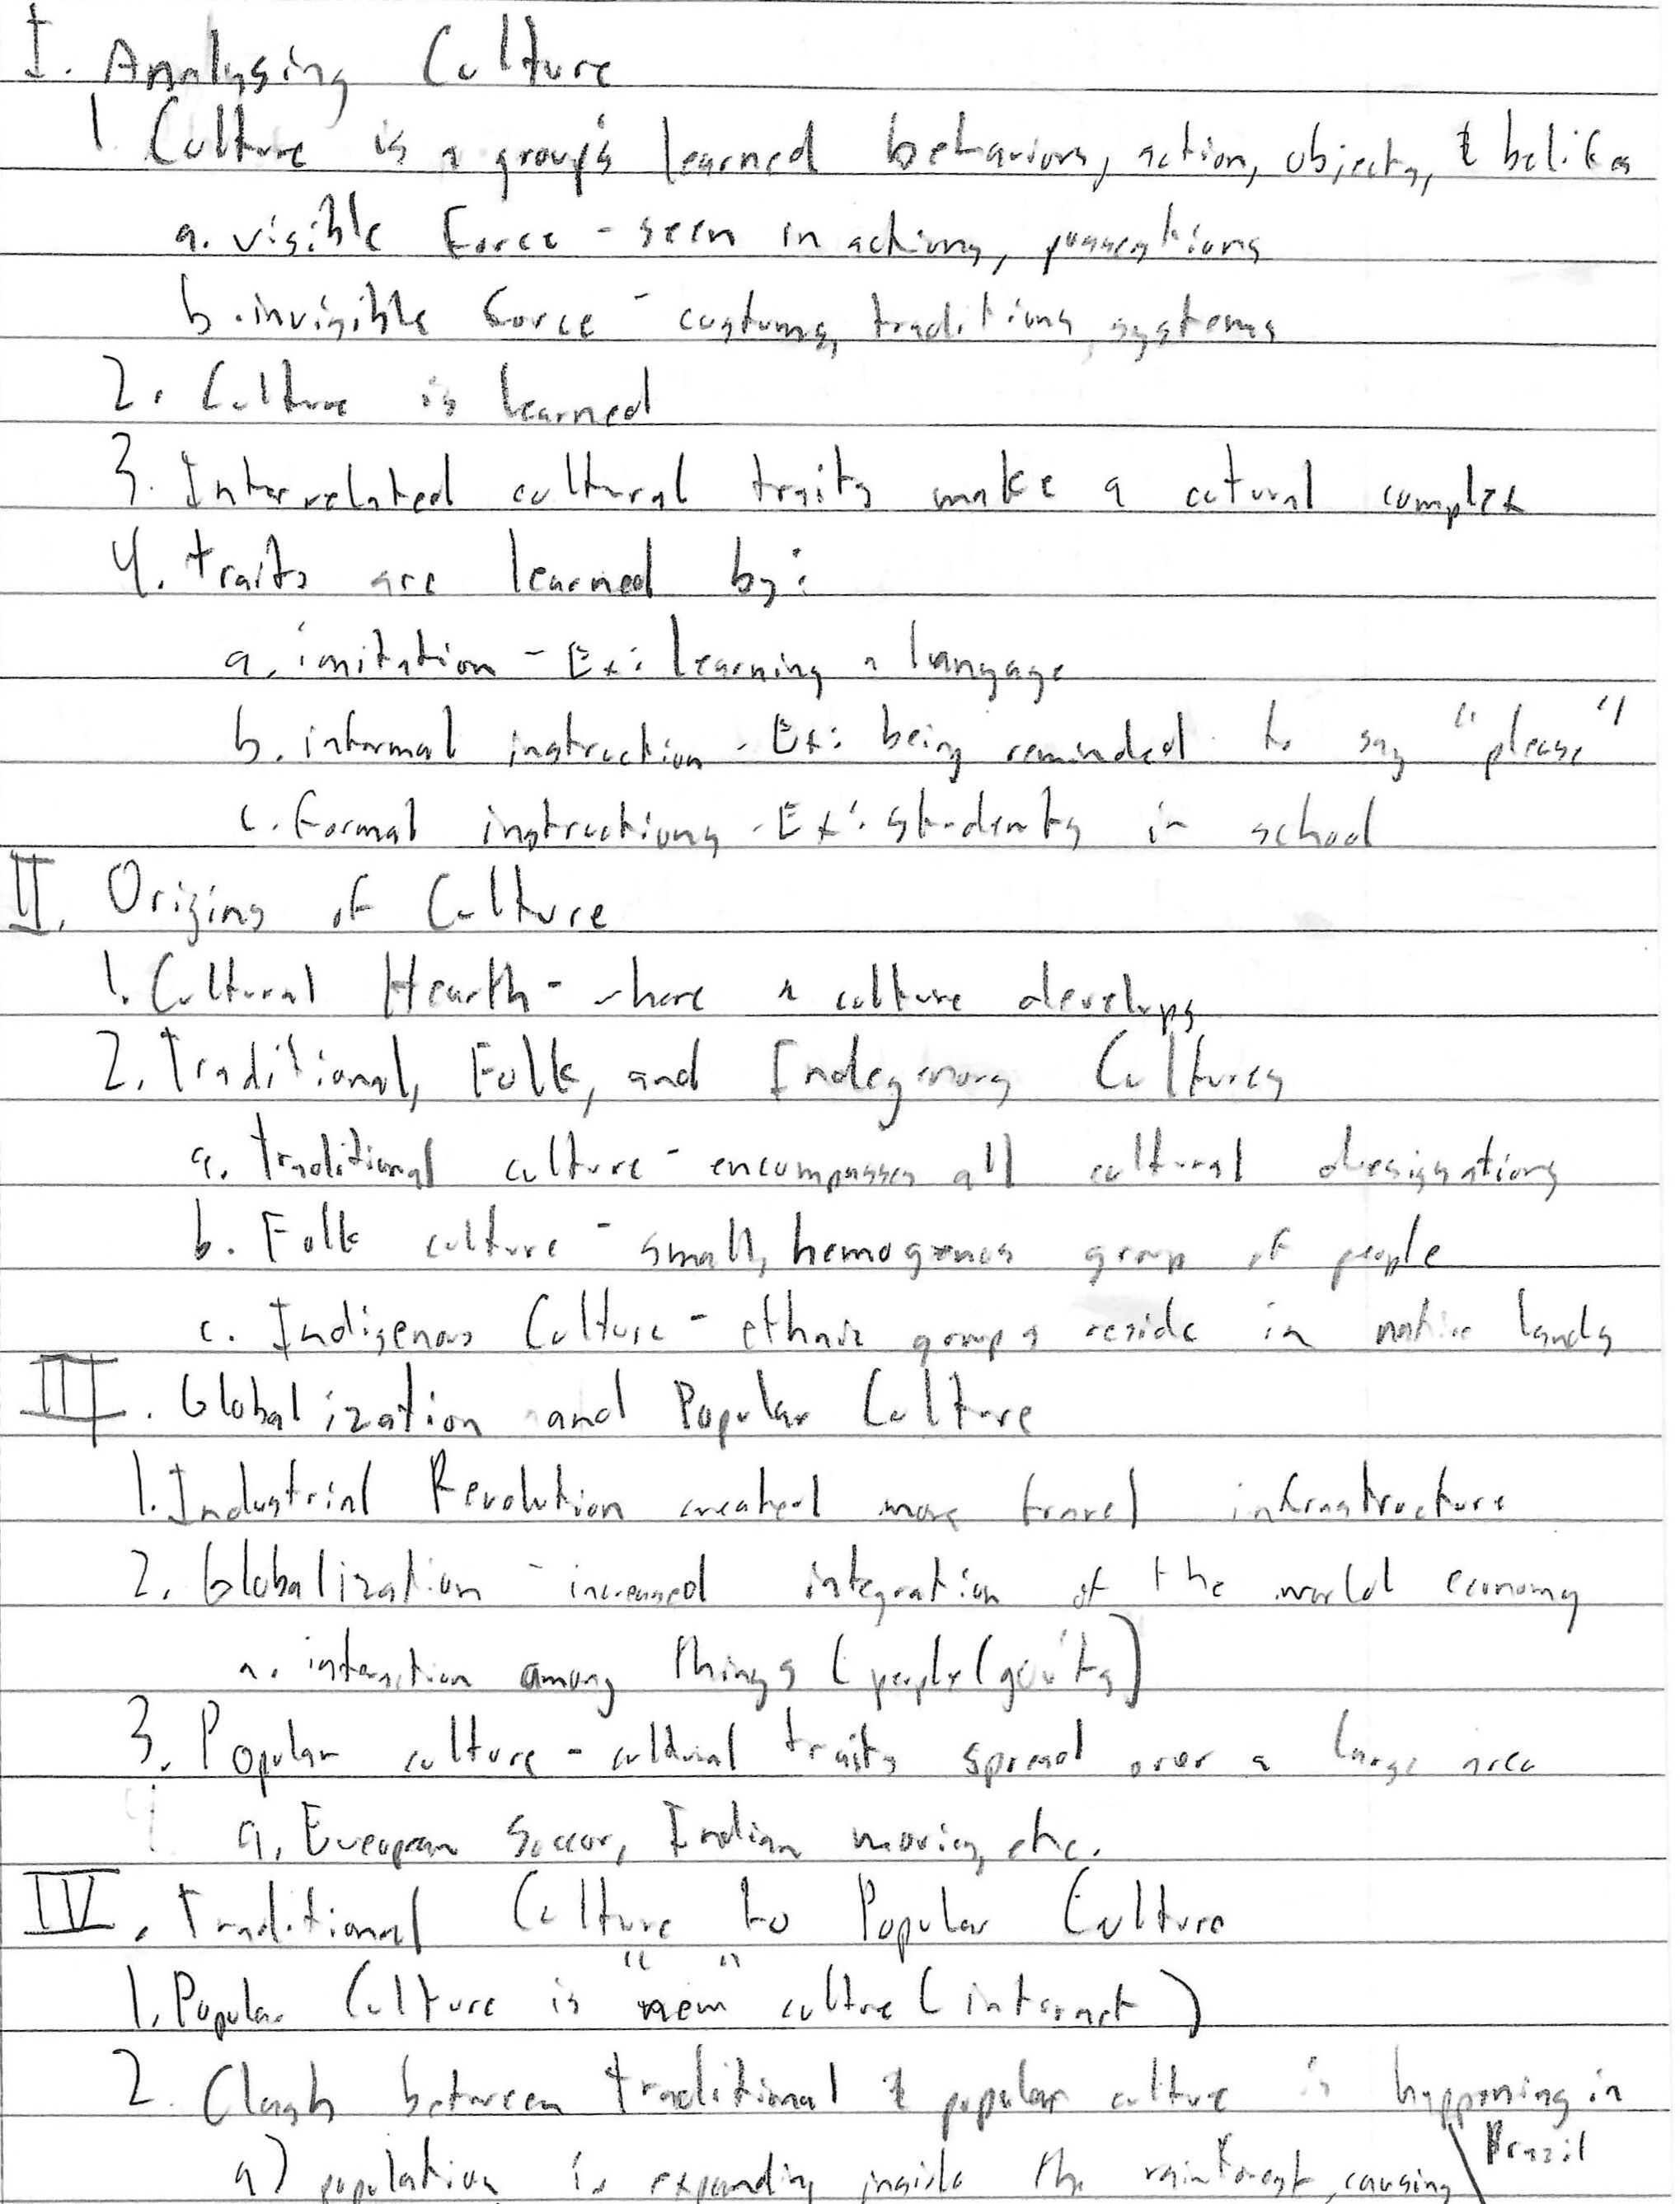 I. Analysing Culture
1 Culture is a group's learned behaviors, action, objects, & beliefs
a. visible force - seen in actions, possessions
b. invisible force - customs, traditions, systems
2. Culture is learned
3. Interrelated cultural traits make a cutural complex
4. traits are learned by:
a. imitation - Ex: learning a language
b. informal instruction - Ex: being reminded to say "please"
c. formal instructions - Ex: students in school
II. Origins of Culture
1. Cultural Hearth - where a culture develops
2. Traditional, Folk, and Indegenous Cultures
a. traditional culture - encompasses all cultural designations
b. Folk culture - small, hemogenous group of people
c. Indigenous Culture - ethnic groups reside in native lands
III. Globalization and Popular Culture
1. Industrial Revolution created more travel infrastructure
2. Globalization - increased integration of the world economy
a. interaction among things (people (gov'ts)
3. Popular culture - cultural traits spread over a large area
a. European Soccer, Indian movies, etc.
IV. Traditional Culture to Popular Culture
1. Popular Culture is "new" culture (internet)
2. Clash between traditional & popular culture is happening in
Brazil
a) population is expanding inside the rainforest, causing